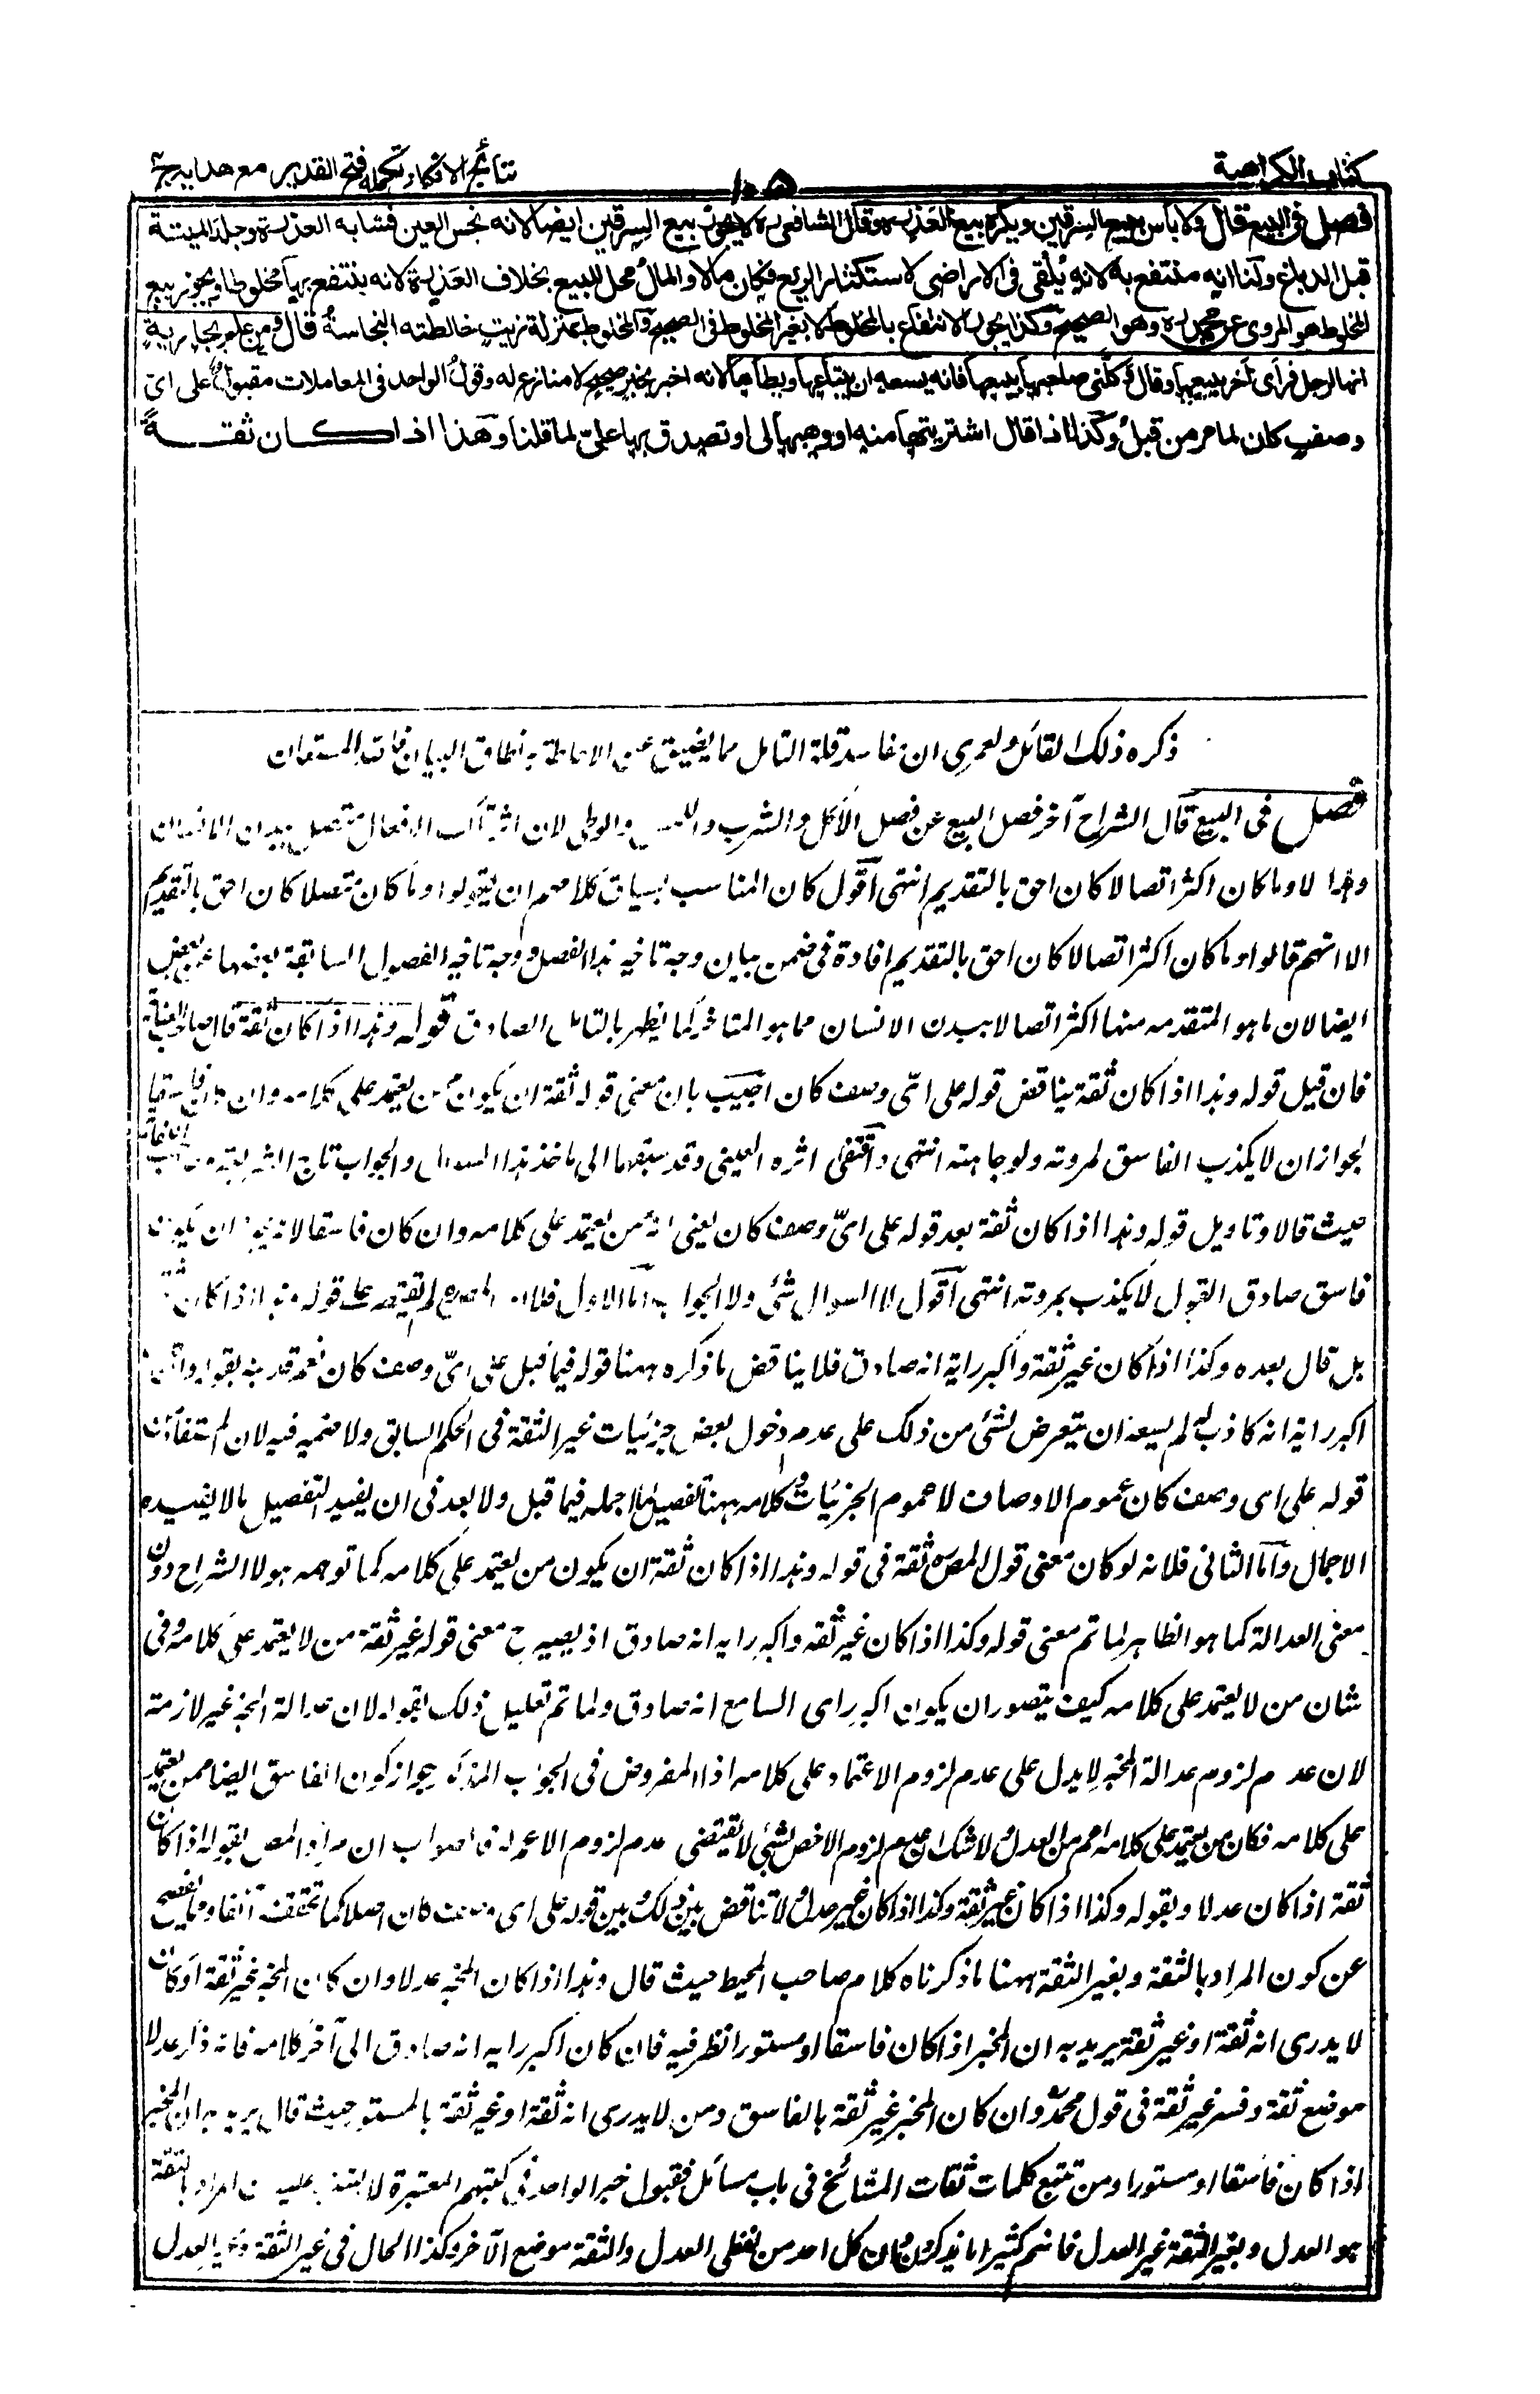 كتاب الكراهية
١٠٥
نتائج الافكار تكمله فتح القدير مع هدايه ج
فصل فى البيع قال ولا بأس ببيع السرقين ويكره بيع العذرة وقال الشافعى رہ لا يجوز بيع السرقين ايضا لانه نجس العين فشابه العذرة وجلد الميتة
قبل الدباغ ولنا انه منتفع به لانه يلقى فى الاراضى لاستكثار الريع فكان مالا والمال محل للبيع بخلاف العذرة لانه ينتفع بها مخلوطا ويجوز بيع
المخلوط هو المروى عن محمد رہ وهو الصحيح وكذا يجوز الانتفاع بالمخلوط لا بغير المخلوط فى الصحيح والمخلوط بمنزلة زيت خالطته النجاسة قال ومن علم بجارية
انها لرجل فرأى آخر يبيعها وقال وكلنى صاحبها ببيعها فانه يسعه ان يبتاعها ويطأها لانه اخبر بخبر صحيح لا منازع له وقول الواحد فى المعاملات مقبول على اى
وصف كان لما مر من قبل وكذا اذا قال اشتريتها منه او وهبها لى او تصدق بها على لما قلنا وهذا اذا كان ثقة
ذكره ذلك القائل ولعمرى ان مفاسد قلة التامل مما يضيق عن الاحاطة به نطاق البيان فالله المستعان
فصل فى البيع قال الشراح آخر فصل البيع عن فصل الاكل والشرب واللبس والوطى لان اثر تلك الافعال متصل ببدن الانسان
وهذا لا وما كان اكثر اتصالا كان احق بالتقديم انتهى اقول كان المناسب بسياق كلامهم ان يقولوا وما كان متصلا كان احق بالتقديم
الا انهم قالوا وما كان اكثر اتصالا كان احق بالتقديم افادة فى ضمن بيان وجه تاخير هذا الفصل وجه تاخير الفصول السابقة بعضها عن بعض
ايضا لان ما هو المتقدم منها اكثر اتصالا ببدن الانسان مما هو المتاخر كما يظهر بالتامل الصادق قوله وهذا اذا كان ثقة قال صاحب العناية
فان قيل قوله وهذا اذا كان ثقة يناقض قوله على اىّ وصف كان اجيب بان معنى قوله ثقة ان يكون ممن يعتمد على كلامه وان كان فاسقا
لجواز ان لا يكذب الفاسق لمروته ولوجاهته انتهى واقتفى اثره العينى وقد سبقهما الى ماخذ هذا السوال والجواب تاج الشريعة
حيث قالا وتاويل قوله وهذا اذا كان ثقة بعد قوله على اىّ وصف كان يعنى انه ممن يعتمد على كلامه وان كان فاسقا لانه يجوز ان يكون
فاسق صادق القول لا يكذب لمروته انتهى اقول لا السوال شئ ولا الجواب اما الاول فلان المصنف لم يقتصر على قوله وهذا اذا كان ثقة
بل قال بعده وكذا اذا كان غير ثقة واكبر رايه انه صادق فلا يناقض ما ذكره ههنا قوله فيما قبل على اىّ وصف كان نعم قد بقوله وان
اكبر رايه انه كاذب لم يسعه ان يتعرض لشئ من ذلك على عدم دخول بعض جزئيات غير الثقة فى الحكم السابق ولا ضير فيه لان المستفاد من
قوله على اى وصف كان عموم الاوصاف لا عموم الجزئيات وكلامه ههنا تفصيل لما اجمله فيما قبل ولا بعد فى ان يفيد التفصيل ما لا يفيده
الاجمال واما الثانى فلانه لو كان معنى قول المصرہ ثقة فى قوله وهذا اذا كان ثقة ان يكون ممن يعتمد على كلامه كما توهمه هولاء الشراح دون
معنى العدالة كما هو الظاهر لما تم معنى قوله وكذا اذا كان غير ثقة واكبر رايه انه صادق اذ يصير ح معنى قوله غير ثقة من لا يعتمد على كلامه وفى
شان من لا يعتمد على كلامه كيف يتصور ان يكون اكبر راى السامع انه صادق ولما تم تعليل ذلك بقوله لان عدالة المخبر غير لازمة
لان عدم لزوم عدالة المخبر لا يدل على عدم لزوم الاعتماد على كلامه اذ المفروض فى الجواب المذكور جواز كون الفاسق ايضا ممن يعتمد
على كلامه فكان من يعتمد على كلامه اعم من العدل ولا شك ان عدم لزوم الاخص لشئ لا يقتضى عدم لزوم الاعم له فالصواب ان مراد المص بقوله اذا كان
ثقة اذا كان عدلا وبقوله وكذا اذا كان غير ثقة وكذا اذا كان غير عدل ولا تناقض بين ذلك وبين قوله على اى وصف كان اصلا كما تحققت آنفا ومما يفصح
عن كون المراد بالثقة وبغير الثقة ههنا ما ذكرناه كلام صاحب المحيط حيث قال وهذا اذا كان المخبر عدلا وان كان المخبر غير ثقة او كان
لا يدرى انه ثقة او غير ثقة يريد به ان المخبر اذا كان فاسقا او مستورا نظر فيه فان كان اكبر رايه انه صادق الى آخر كلامه فانه ذكر عدلا
موضع ثقة وفسر غير ثقة فى قول محمد وان كان المخبر غير ثقة بالفاسق ومن لا يدرى انه ثقة او غير ثقة بالمستور حيث قال يريد به ان المخبر
اذا كان فاسقا او مستورا ومن تتبع كلمات ثقات المشائخ فى باب مسائل قبول خبر الواحد فى كتبهم المعتبرة لا يشتبه عليه ان المراد بالثقة
هو العدل وبغير الثقة غير العدل فانهم كثيرا ما يذكرون كل احد من لفظى العدل والثقة موضع الآخر وكذا الحال فى غير الثقة وغير العدل